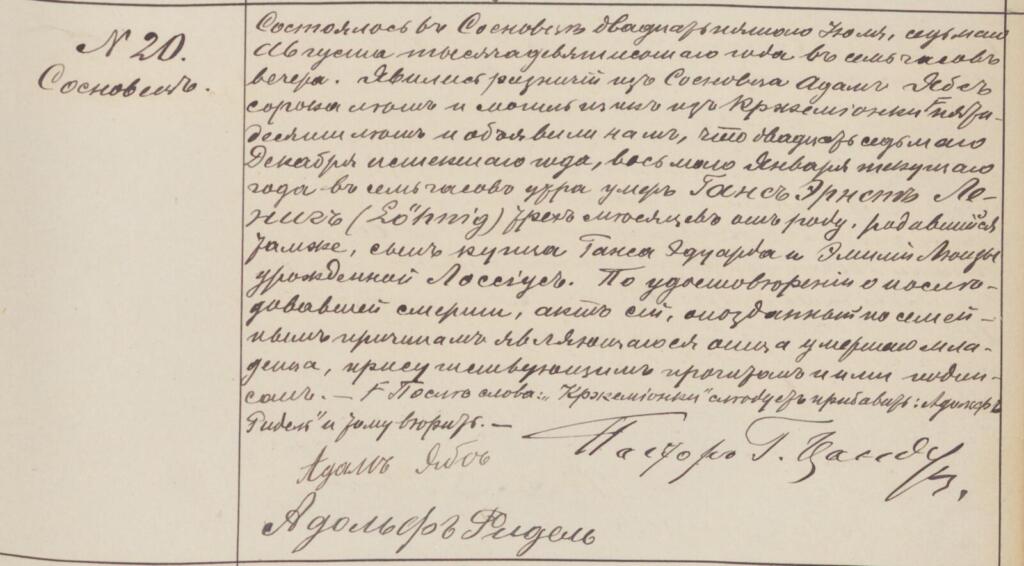 N 20.
Сосновецъ.
Состоялось въ Сосновецѣ двадцать пятаго Іюля, седьмаго
Августа тысяча девятисотаго года въ семь часовъ
вечера. Явились рѣзчикъ изъ Сосновца Адамъ Ябсъ
сорока лѣтъ и могильщикъ изъ Кржеміонки Ғ пяти-
десяти лѣтъ и объявили намъ, что двадцать седьмаго
Декабря истекшаго года, восьмаго Января текущаго
года въ семь часовъ утра умеръ Гансъ Эрнстъ Ле-
нигъ (Löhnig) трехъ мѣсяцевъ отъ роду, родившійся
тамже, сынъ купца Ганса Эдуарда и Эмиліи Люизы
урожденной Лоссіусъ. По удостовѣреніи о послѣ-
довавшей смерти, актъ сій, опозданный по семей-
нымъ причинамъ являющагося отца умершаго мла-
денца, присутствующимъ прочитанъ и ими подпи-
санъ. — Ғ Послѣ слова: „Кржеміонки" слѣдуетъ прибавить: Адольфъ
Ридель" и тому вѣрить. —
Пасторъ Г.
Адамъ Ябсъ
Адольфъ Ридель